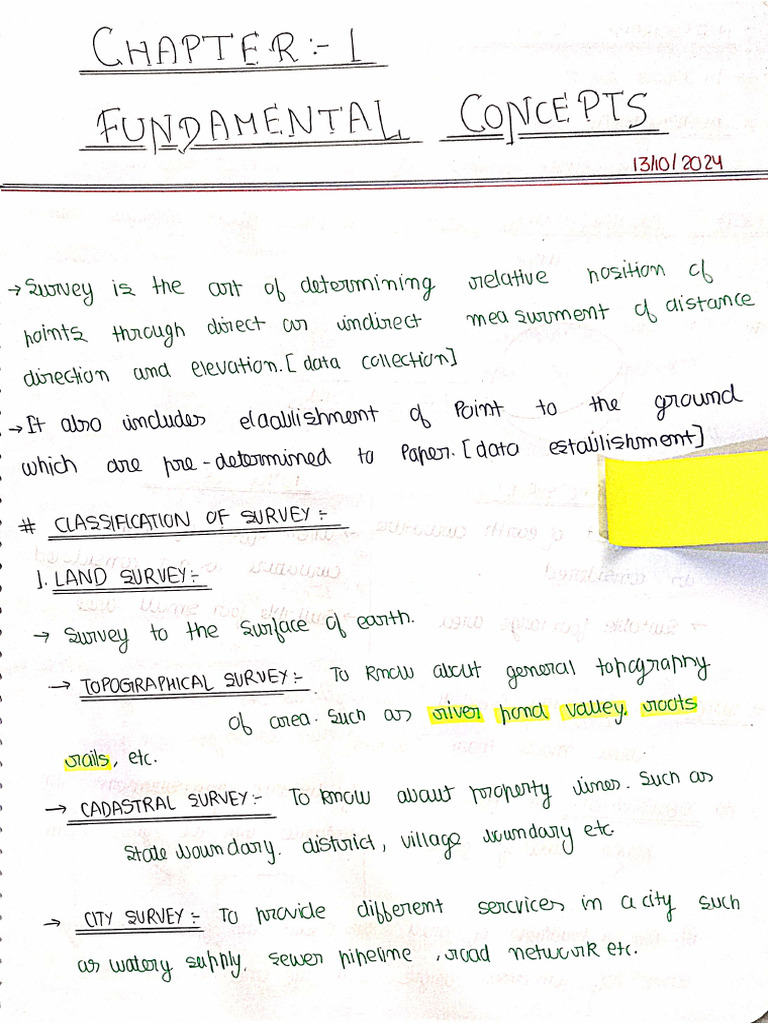 CHAPTER:- 1
FUNDAMENTAL CONCEPTS
13/10/2024
→ Survey is the art of determining relative position of
points through direct or indirect measurment of distance
direction and elevation. [data collection]
→ It also includes elaablishment of Point to the ground
which are pre-determined to Paper. [data establishment]
# CLASSIFICATION OF SURVEY:-
1. LAND SURVEY:-
→ Survey to the surface of earth.
→ TOPOGRAPHICAL SURVEY:- To know about general topography
of area. Such as river pond valley, roots
rails, etc.
→ CADASTRAL SURVEY:- To know about property lines. Such as
State boundary. district, village boundary etc.
→ CITY SURVEY:- To provide different services in a city such
as watery supply, sewer pipeline, road network etc.